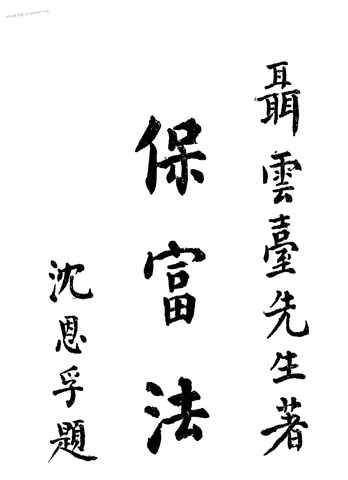 聶雲臺先生著
保富法
沈恩孚題